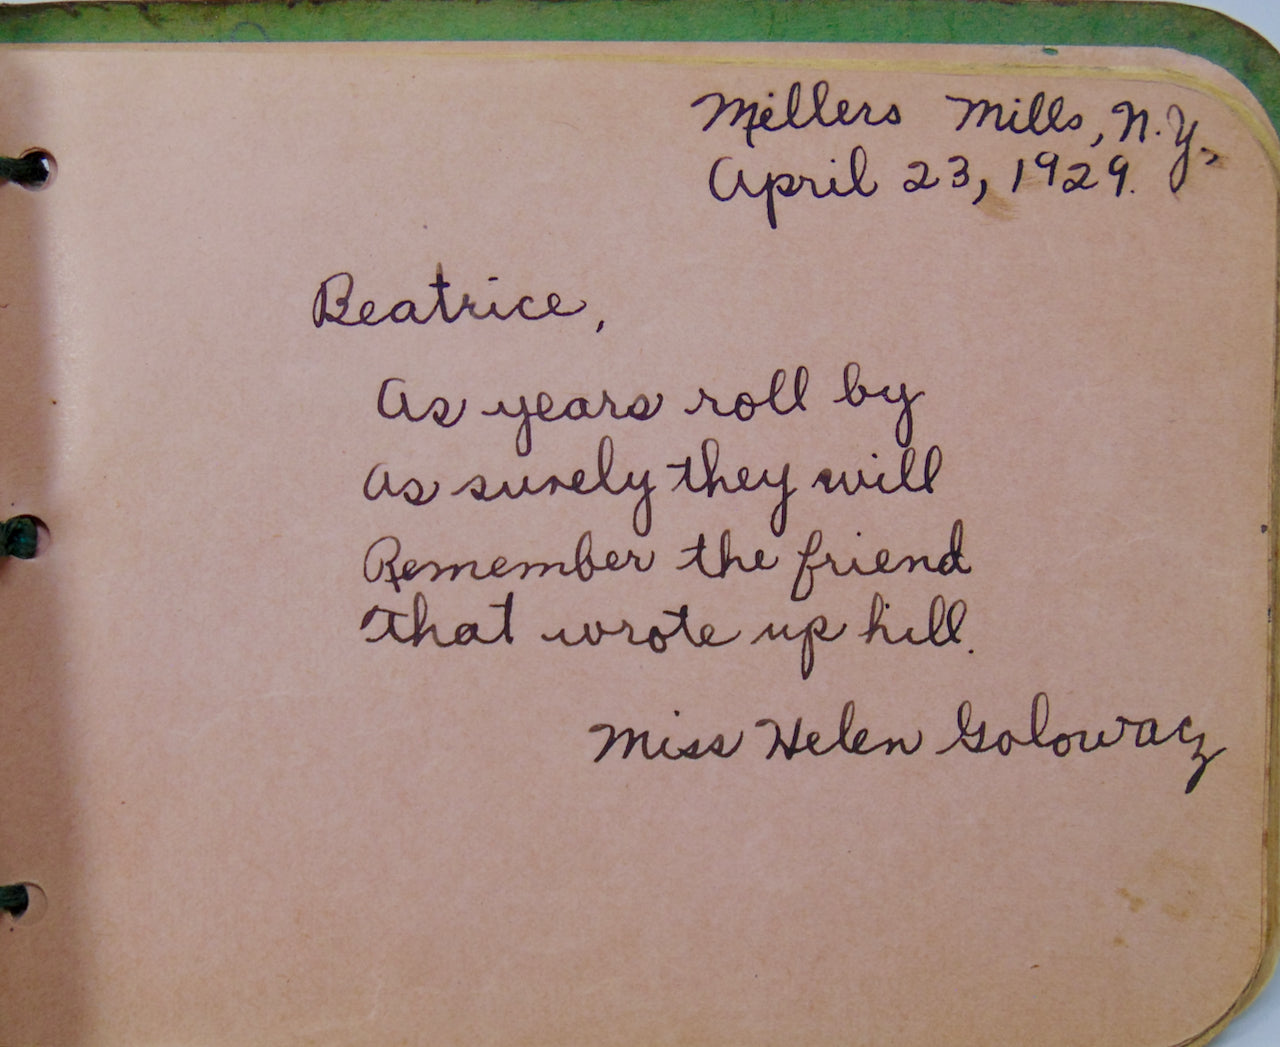 Millers Mills, N.Y.,
April 23, 1929.
Beatrice,
As years roll by
As surely they will
Remember the friend
That wrote up hill.
Miss Helen Golowacz